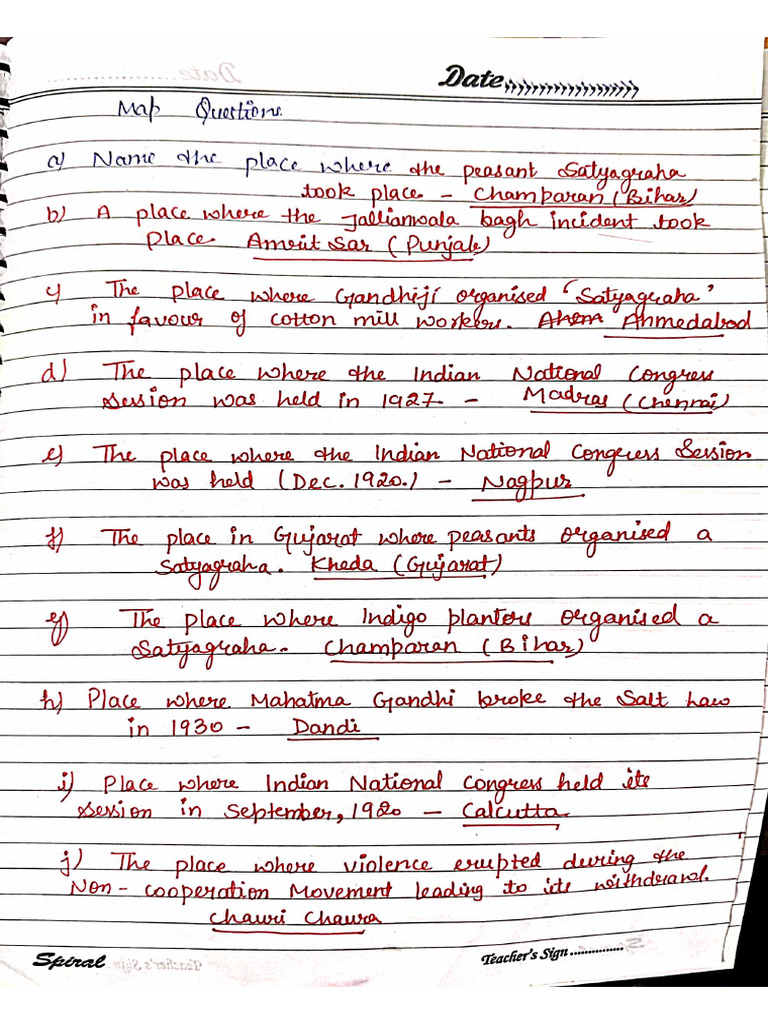 Date
Map Questions
a) Name the place where the peasant Satyagraha
took place - Champaran (Bihar)
b) A place where the Jallianwala bagh incident took
Place. Amrit Sar (Punjab)
c) The place where Gandhiji organised 'Satyagraha'
in favour of cotton mill workers. Ahem Ahmedabad
d) The place where the Indian National Congress
session was held in 1927. - Madras (Chennai)
e) The place where the Indian National Congress Session
was held (Dec. 1920.) - Nagpur
f) The place in Gujarat where peasants organised a
Satyagraha. Kheda (Gujarat)
g) The place where Indigo planters organised a
Satyagraha. Champaran (Bihar)
h) Place where Mahatma Gandhi broke the Salt Law
in 1930 - Dandi
i) Place where Indian National Congress held its
session in September, 1920 - Calcutta
j) The place where violence erupted during the
Non-cooperation Movement leading to its withdrawl.
Chauri Chaura
Spiral
Teacher's Sign ...............